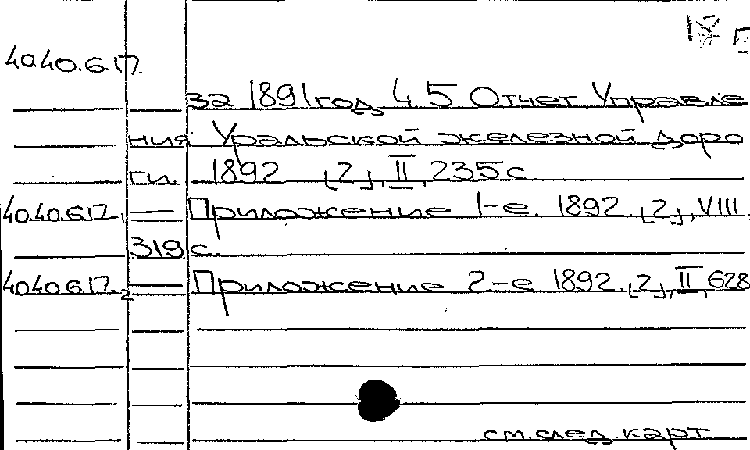 40.40.617.
за 1891 год, Ч.5 Отчет Управле
ния Уральской железной доро
ги. 1892 [2], II, 235 с
40.40.617.1 — Приложение 1-е. 1892. [2], VIII,
319 с.
40.40.617.2 — Приложение 2-е 1892. [2], II, 628
см. след. карт